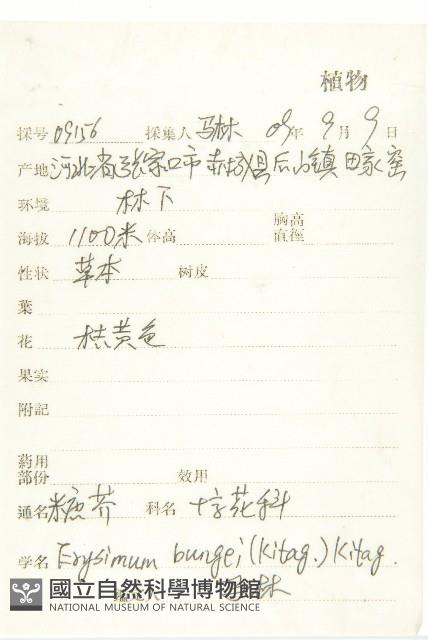 植物
採号 09156 採集人 马林 09年9月9日
产地 河北省张家口市赤城县后城镇田家窑
环境 林下
海拔 1100米 体高 胸高直徑
性状 草本 树皮
葉
花 桔黄色
果实
附記
葯用部份 效用
通名 糖芥 科名 十字花科
学名 Erysimum bungei (Kitag.) Kitag.
马林
國立自然科學博物館
NATIONAL MUSEUM OF NATURAL SCIENCE